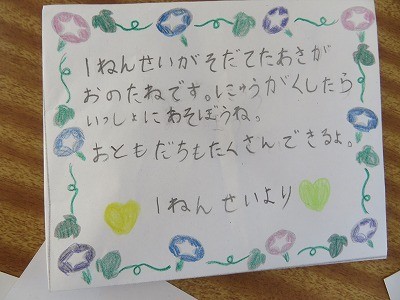 1ねんせいがそだてたあさが
おのたねです。にゅうがくしたら
いっしょにあそぼうね。
おともだちもたくさんできるよ。
1ねんせいより